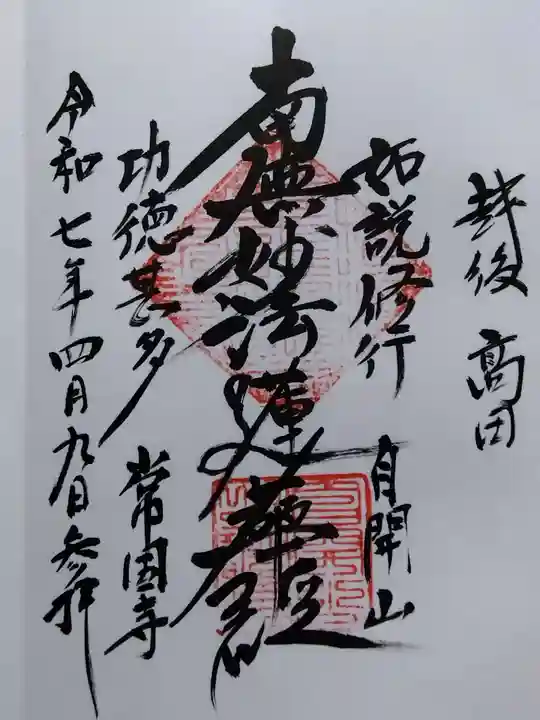 越後 高田
如説修行
自開山
南無妙法蓮華経
功徳甚多
常国寺
令和七年四月九日参拝